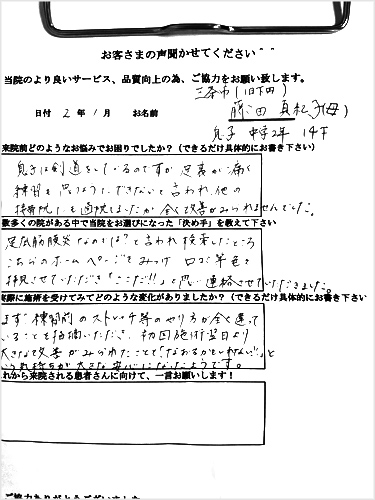 お客さまの声聞かせてください^^
当院のより良いサービス、品質向上の為、ご協力をお願い致します。
三条市(旧下田)
日付 2年 1月 お名前 藤田 真紀子(母)
息子 中学2年 14才
来院前どのようなお悩みでお困りでしたか?(できるだけ具体的にお書き下さい)
息子は剣道をしているのですが足裏が痛く
練習を思うようにできないと言われ、他の
接骨院にも通院しましたが全く改善がみられませんでした。
数多くの院がある中で当院をお選びになった「決め手」を教えて下さい
足底筋膜炎なのでは?と言われ検索したところ
こちらのホームページをみつけ 口コミ等色々
拝見させていただき「ここだ!!」と思い連絡させていただきました。
実際に施術を受けてみてどのような変化がありましたか?(できるだけ具体的にお書き下さい
まず練習前のストレッチ等のやり方が全く違って
いることを指摘いただき、初回施術翌日より
大きな改善がみられたことで「なおるかもしれない!!」と
いう気持ちが大きな安心になったようです。
れから来院される患者さんに向けて、一言お願いします!
ご協力ありがとうございました